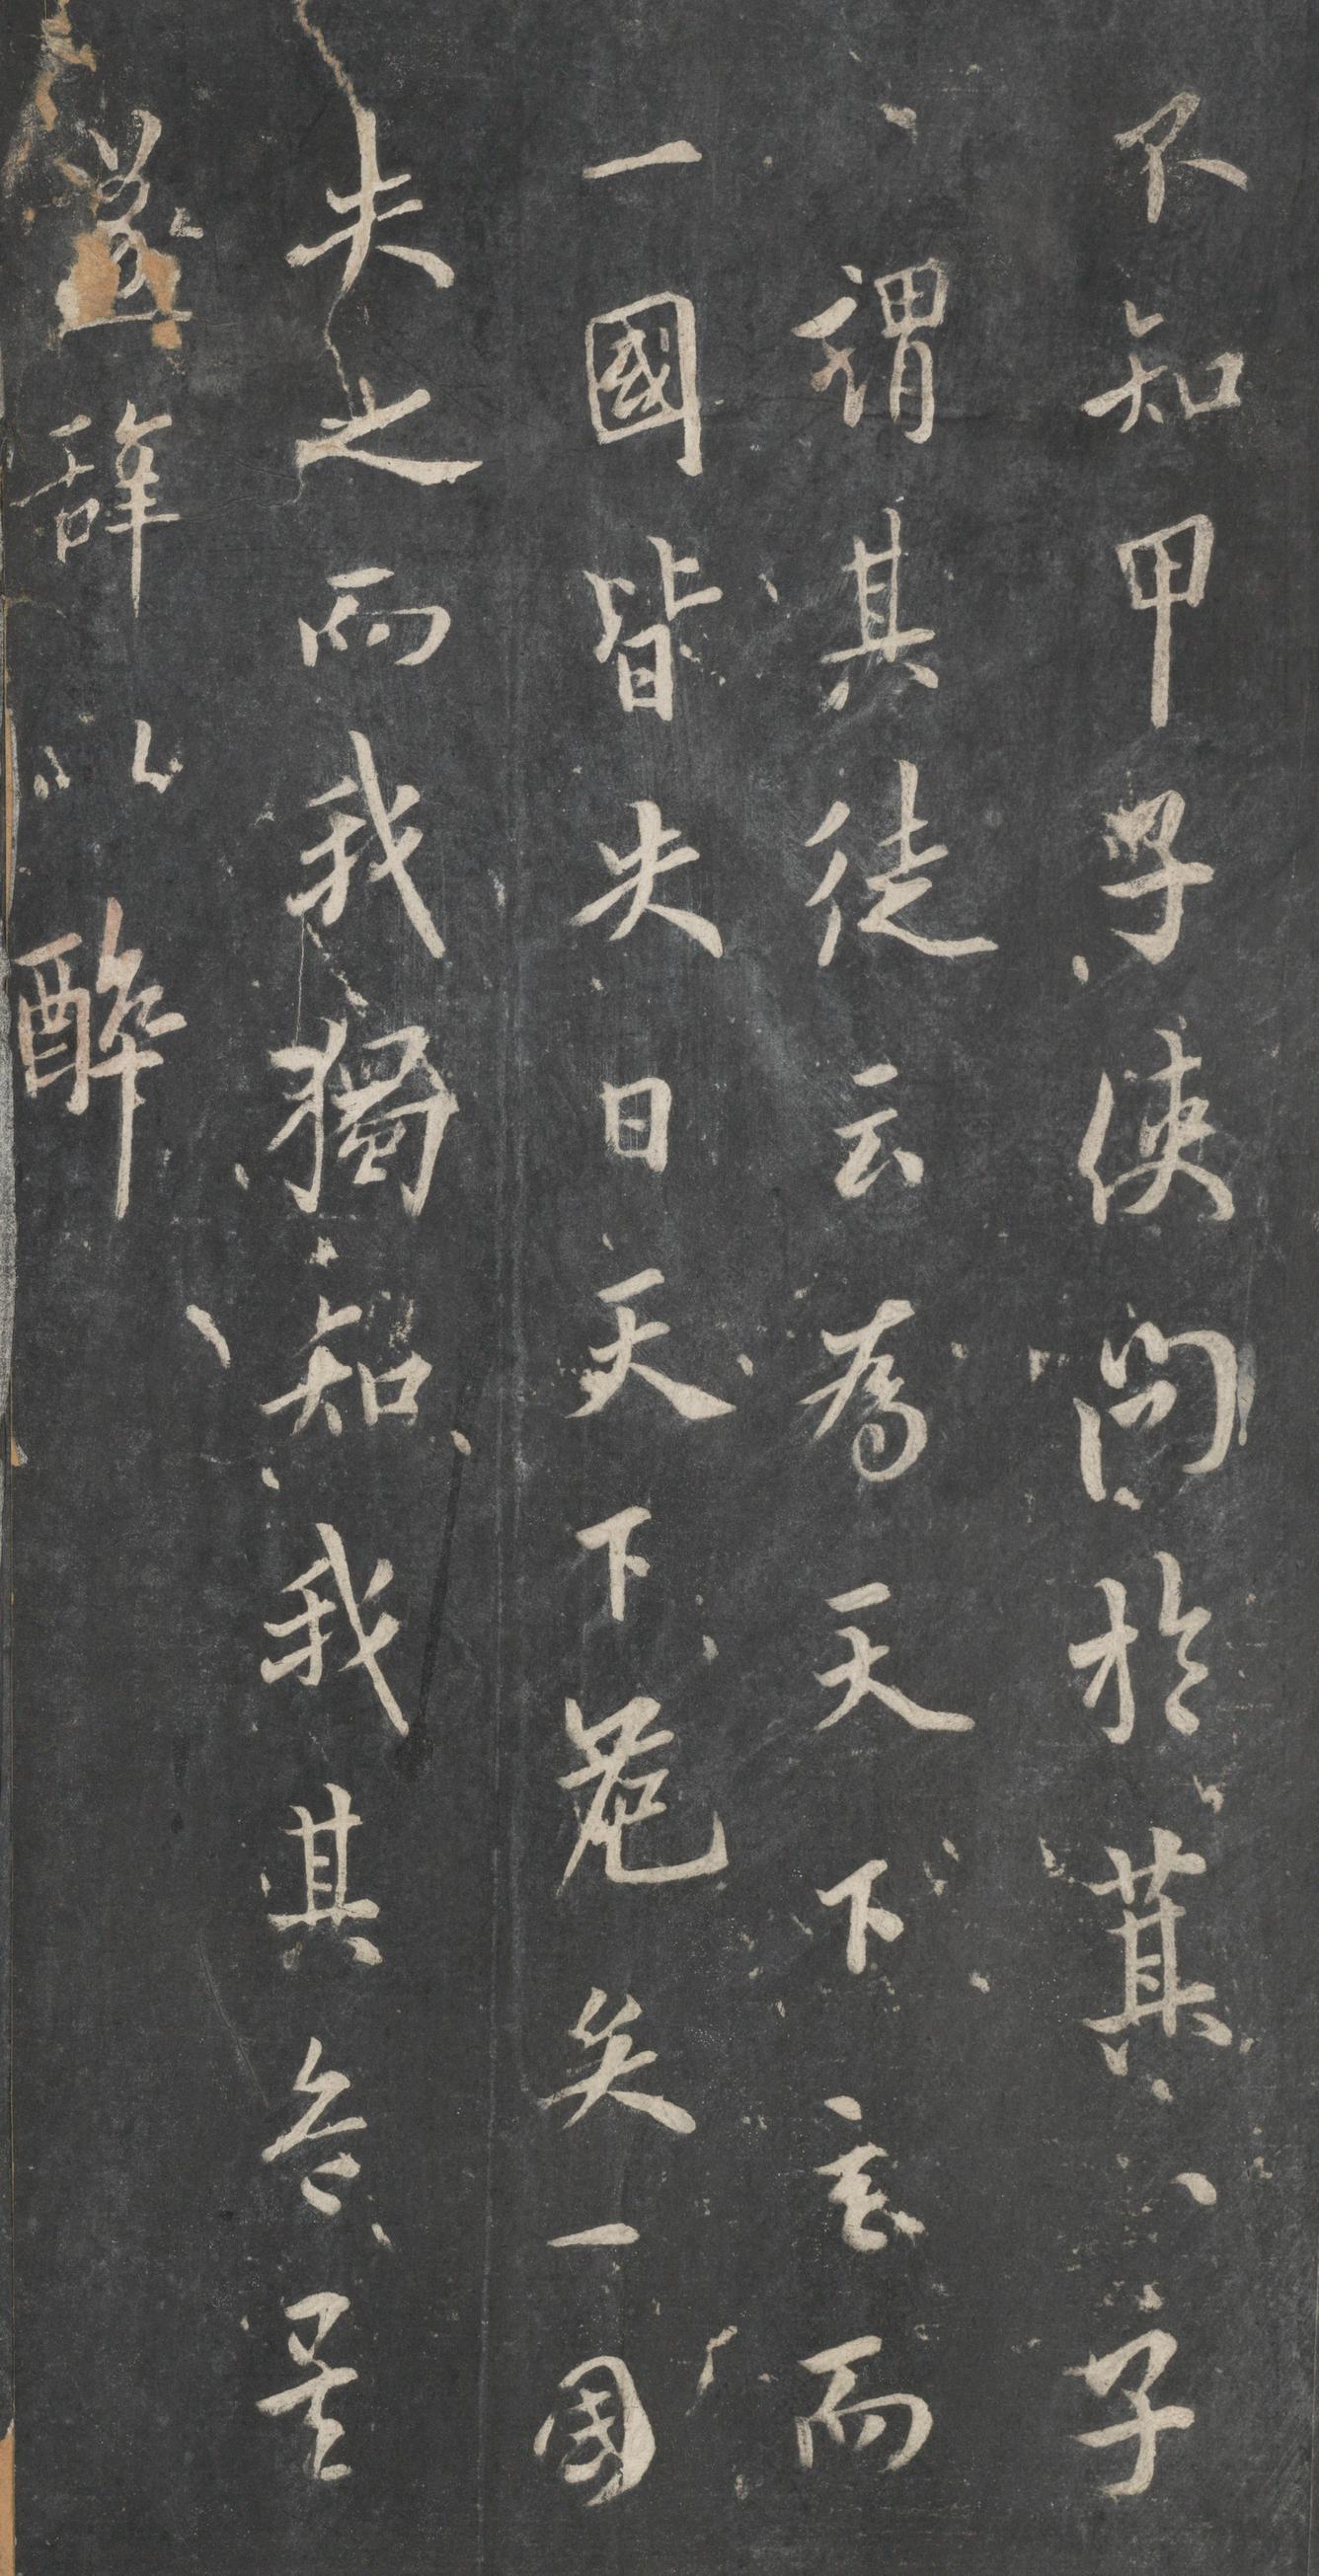 不知甲子使問於其子
謂其徒云為天下主而
一國皆失日天下危矣一國
失之而我獨知我其危矣
遂辭以醉